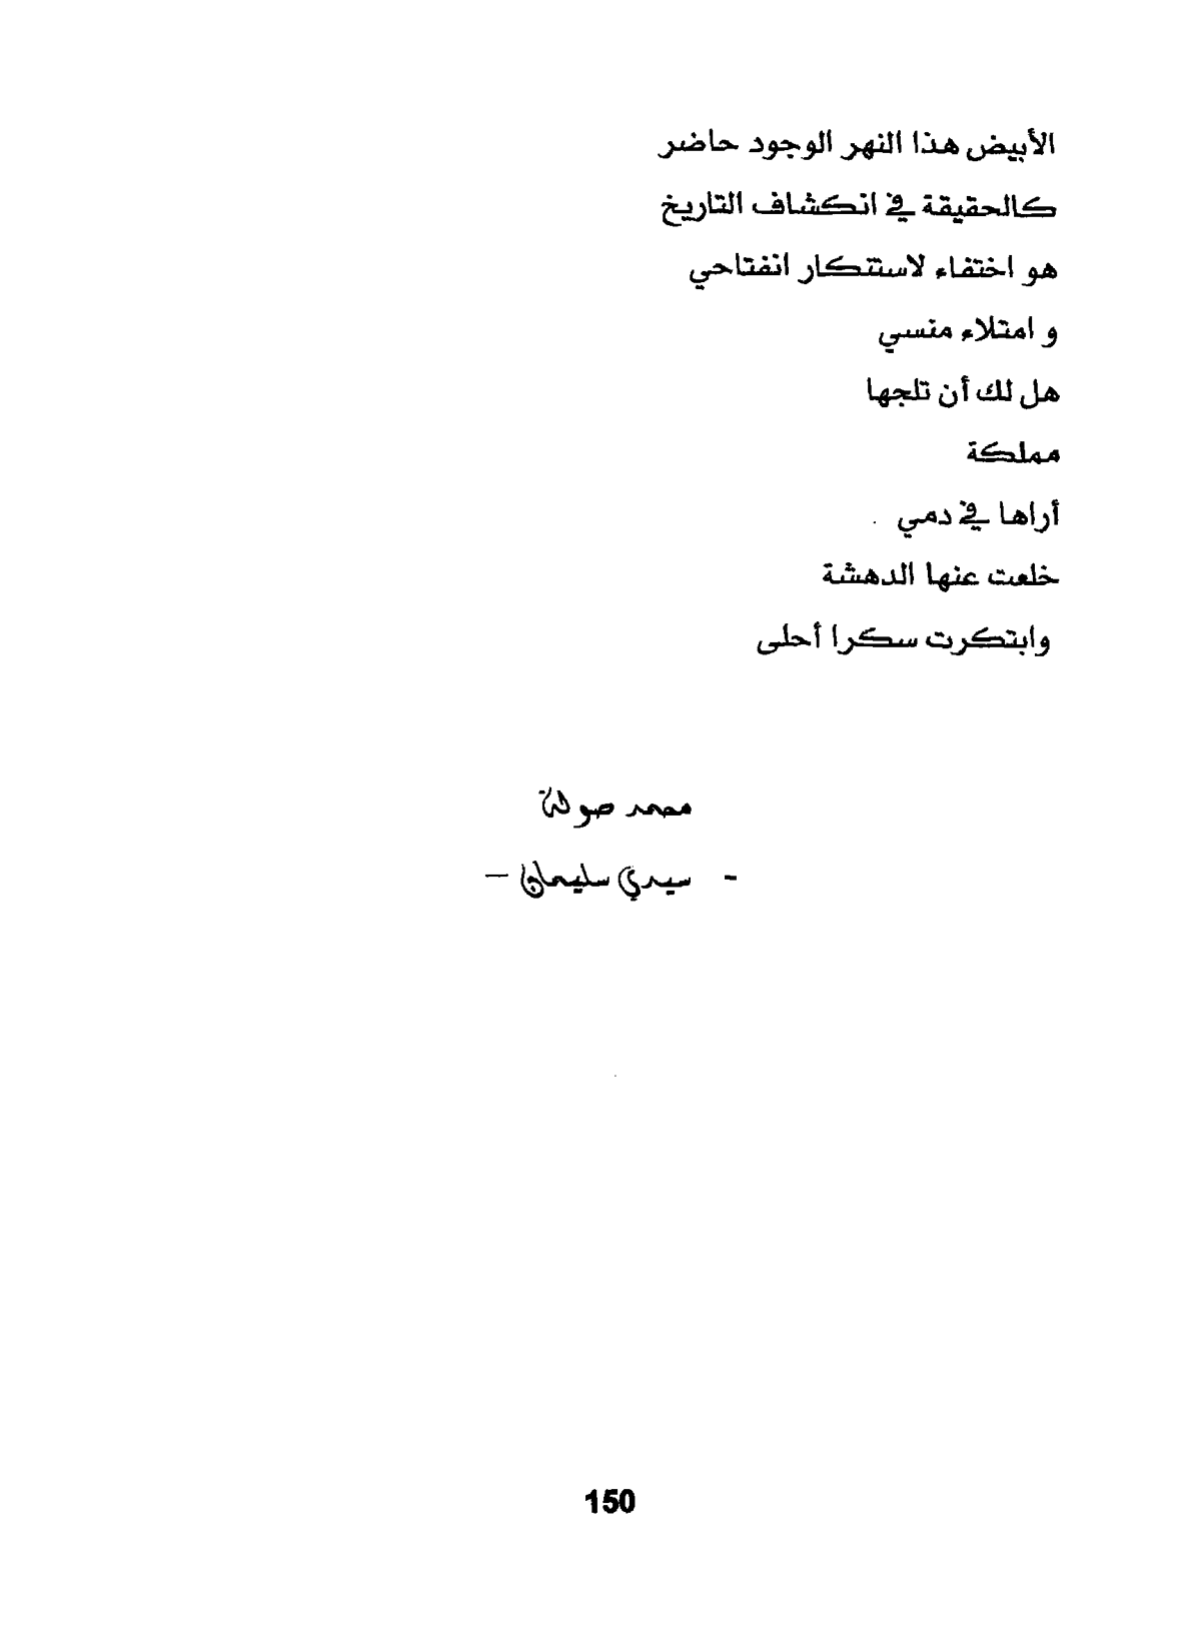 الأبيض هذا النهر الوجود حاضر
كالحقيقة في انكشاف التاريخ
هو اختفاء لاستنكار انفتاحي
و امتلاء منسي
هل لك أن تلجها
مملكة
أراها في دمي .
خلعت عنها الدهشة
وابتكرت سكرا أحلى
محمد صولة
- سيدي سليمان –
150